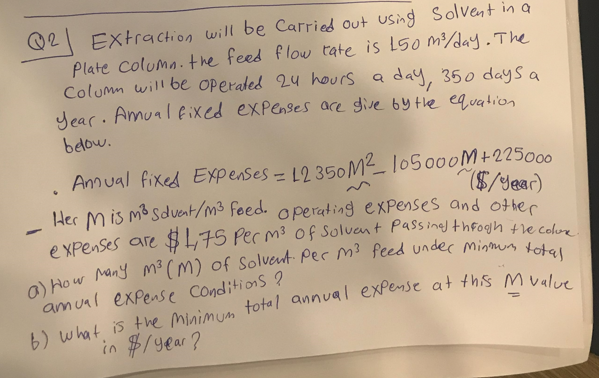 Q2) Extraction will be Carried out using Solvent in a
Plate Column. the feed flow rate is 150 m³/day. The
Column will be operated 24 hours a day, 350 days a
year. Annual fixed expenses are give by the equation
below.
. Annual fixed Expenses = 12350M² - 105000M + 225000
($/year)
- Her M is m³ Solvent/m³ feed. Operating expenses and other
expenses are $1,75 Per m³ of Solvent Passing through the
a) How many m³ (M) of Solvent Per m³ feed under minimum total
annual expense Conditions?
b) What is the minimum total annual expense at this M value
in $/year?